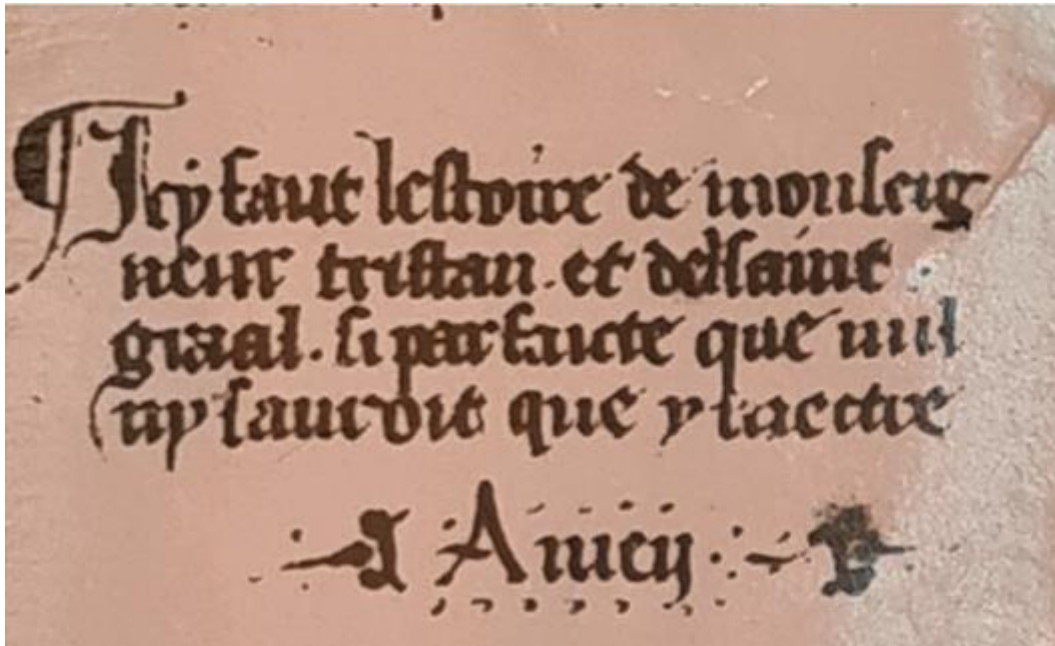 Icy faut lestoire de monseig
neur tristan. et del saint
graal. si parfaicte que nul
ny sauroit que y mectre
Amen